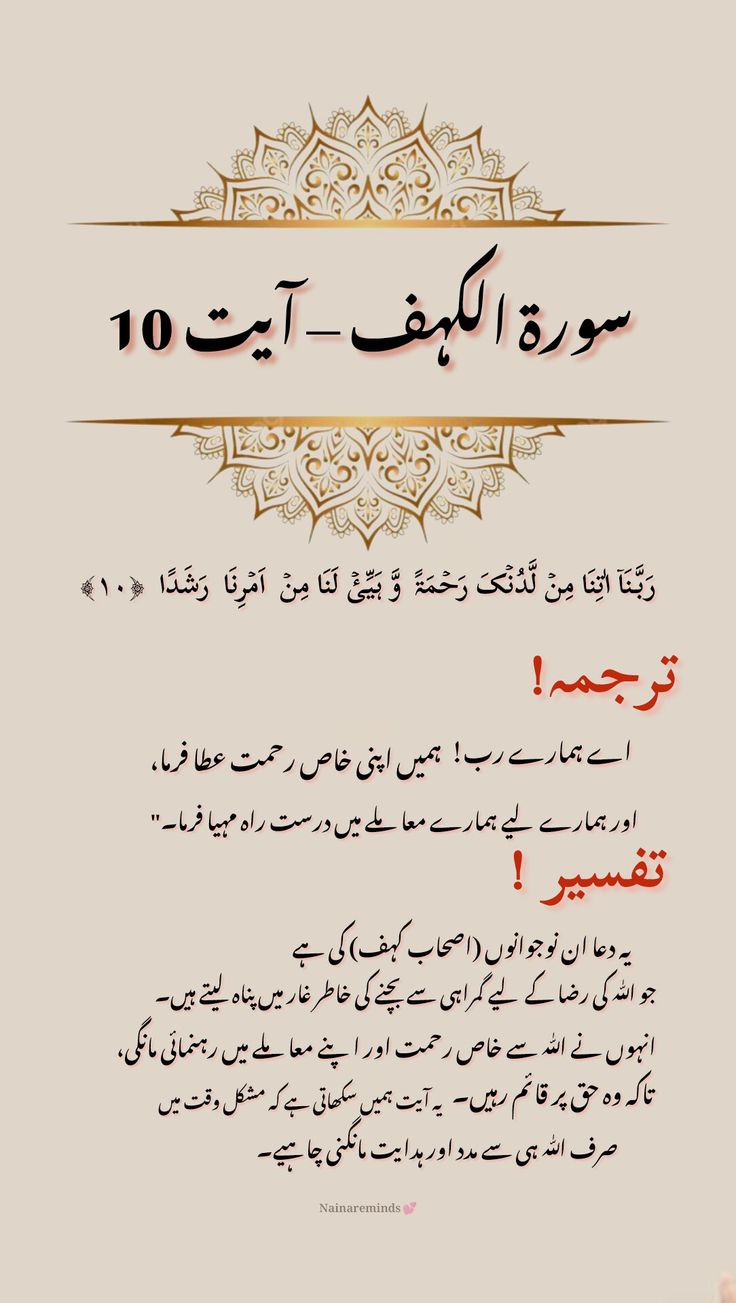 سورۃ الکہف – آیت 10
رَبَّنَاۤ اٰتِنَا مِنۡ لَّدُنۡکَ رَحۡمَۃً وَّ ہَیِّیٴۡ لَنَا مِنۡ اَمۡرِنَا رَشَدًا ﴿۱۰﴾
ترجمہ!
اے ہمارے رب! ہمیں اپنی خاص رحمت عطا فرما،
اور ہمارے لیے ہمارے معاملے میں درست راہ مہیا فرما۔"
تفسیر !
یہ دعا ان نوجوانوں (اصحاب کہف) کی ہے
جو اللہ کی رضا کے لیے گمراہی سے بچنے کی خاطر غار میں پناہ لیتے ہیں۔
انہوں نے اللہ سے خاص رحمت اور اپنے معاملے میں رہنمائی مانگی،
تاکہ وہ حق پر قائم رہیں۔ یہ آیت ہمیں سکھاتی ہے کہ مشکل وقت میں
صرف اللہ ہی سے مدد اور ہدایت مانگنی چاہیے۔
Nainareminds 💕